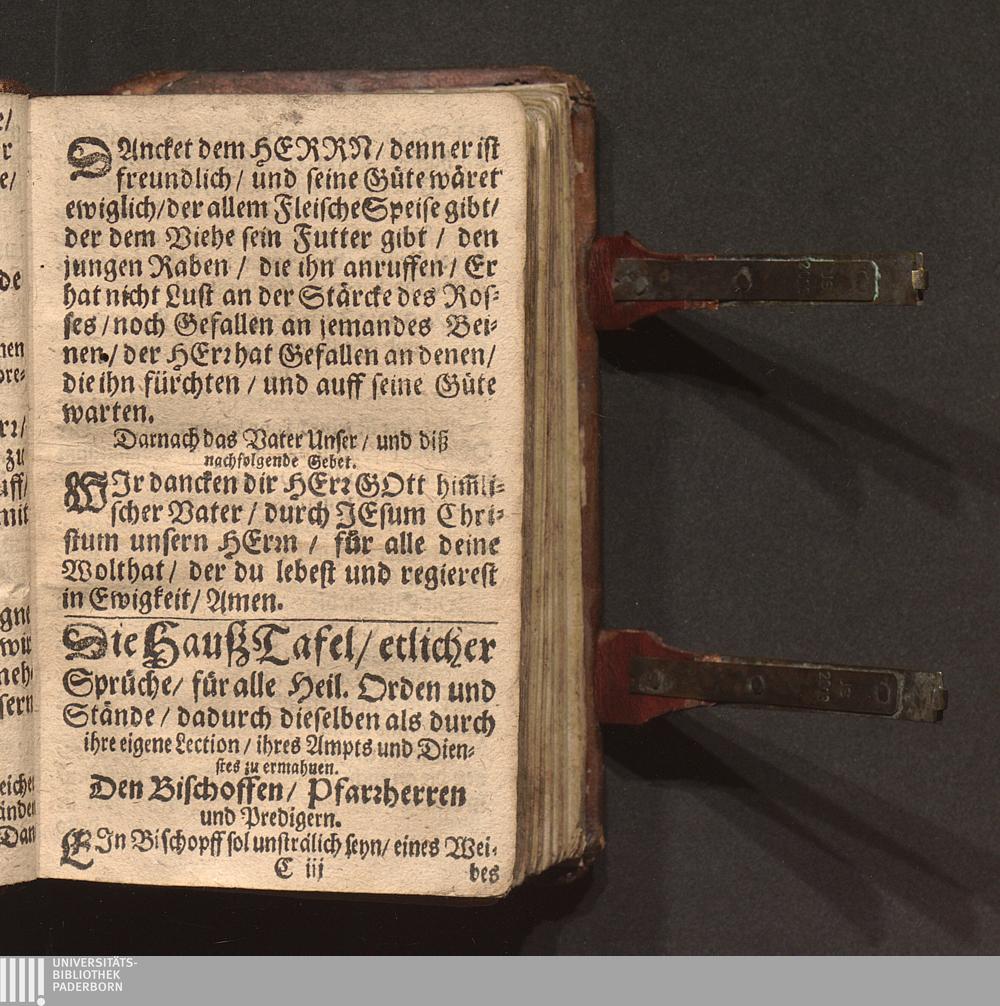 DAncket dem HERRN/ denn er ist
freundlich/ und seine Güte wäret
ewiglich/ der allem Fleische Speise gibt/
der dem Viehe sein Futter gibt / den
jungen Raben / die ihn anruffen/ Er
hat nicht Lust an der Stärcke des Ros-
ses / noch Gefallen an jemandes Bei-
nen/ der HErr hat Gefallen an denen/
die ihn fürchten / und auff seine Güte
warten.
Darnach das Vater Unser / und diß
nachfolgende Gebet.
WIr dancken dir HErr GOtt him̃li-
scher Vater / durch JEsum Chri-
stum unsern HErrn / für alle deine
Wolthat/ der du lebest und regierest
in Ewigkeit/ Amen.
Die Hauß Tafel/ etlicher
Sprüche/ für alle Heil. Orden und
Stände / dadurch dieselben als durch
ihre eigene Lection / ihres Ampts und Dien-
stes zu ermahnen.
Den Bischoffen/ Pfarrherren
und Predigern.
EIn Bischopff sol unsträlich seyn/ eines Wei-
C iij
bes
UNIVERSITÄTS-
BIBLIOTHEK
PADERBORN